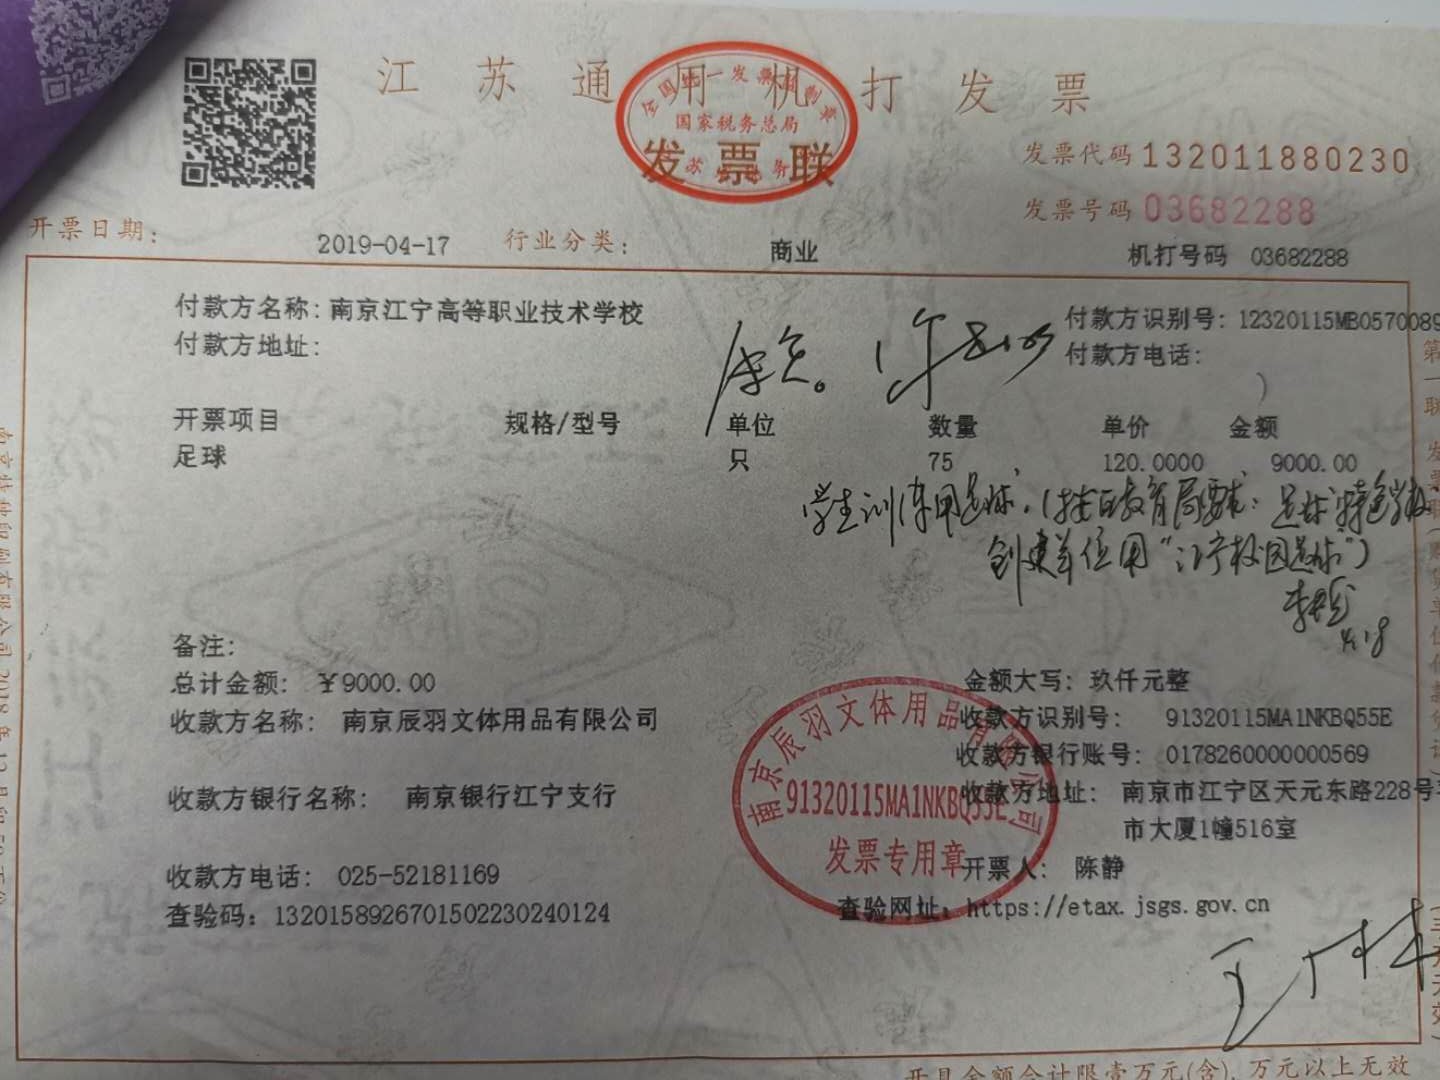 江苏通用机打发票
全国统一发票监制章
国家税务总局
发票联
发票代码 132011880230
发票号码 03682288
开票日期： 2019-04-17 行业分类： 商业 机打号码 03682288
付款方名称：南京江宁高等职业技术学校 付款方识别号：12320115MB0570089
付款方地址： 付款方电话：
开票项目 规格/型号 单位 数量 单价 金额
足球 只 75 120.0000 9000.00
学生训练用足球，(按区教育局要求：足球特色学校
创建单位用“江宁校园足球”)
4.18
备注：
总计金额： ￥9000.00 金额大写：玖仟元整
收款方名称： 南京辰羽文体用品有限公司 收款方识别号： 91320115MA1NKBQ55E
收款方银行账号：0178260000000569
收款方银行名称： 南京银行江宁支行 收款方地址： 南京市江宁区天元东路228号
市大厦1幢516室
收款方电话： 025-52181169 开票人： 陈静
查验码：13201589267015022302401​24 查验网址：https://etax.jsgs.gov.cn
南京辰羽文体用品有限公司
91320115MA1NKBQ55E
发票专用章
王广林
开具金额合计限壹万元(含)，万元以上无效